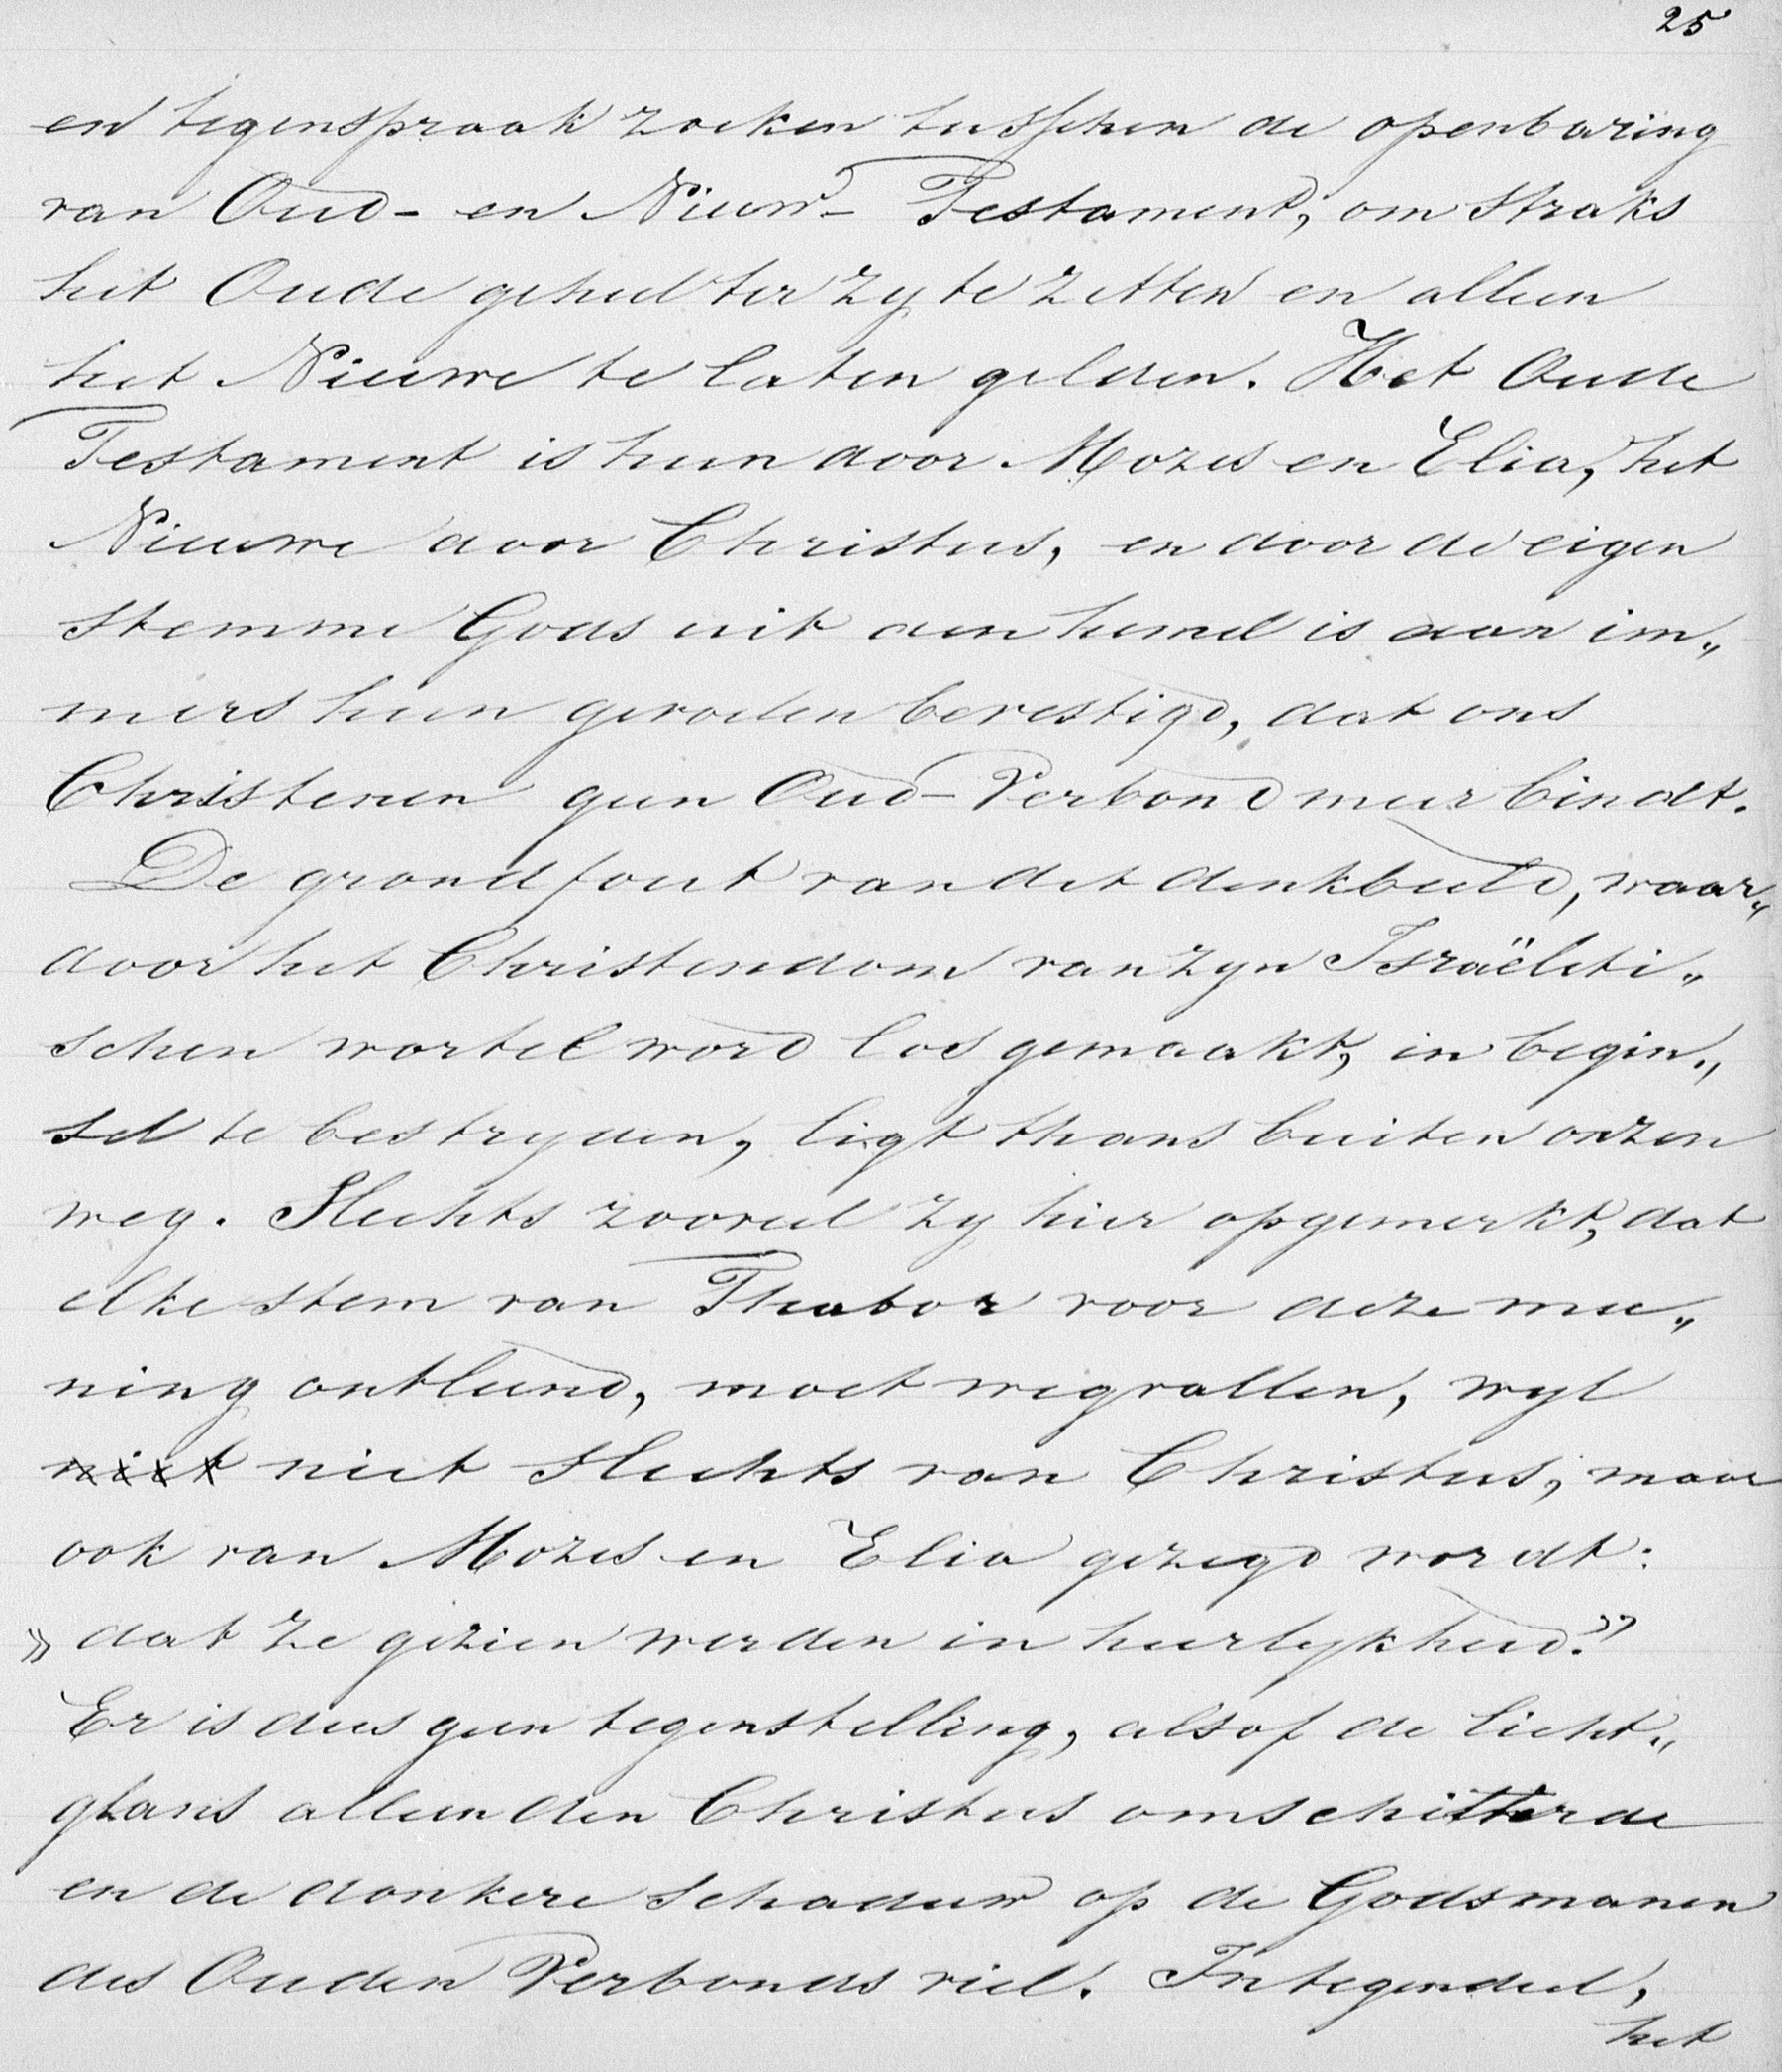 25
en tegenspraak zoeken tusschen de openbaring
van Oud- en Nieuw- Testament; om straks
het Oude geheel ter zy te zetten en alleen
het Nieuwe te laten gelden. Het Oude
Testament is hun door Mozes en Elia, het
Nieuwe door Christus, en door de eigen
stemme Gods uit den hemel is dan im„
mers hun gevoelen bevestigd, dat ons
Christenen geen Oud-Verbond meer bindt.
De grondfout van dit denkbeeld, waar„
door het Christendom van zyn Israëliti„
schen wortel word los gemaakt, in begin„
sel te bestryden, ligt thans buiten onzen
weg. Slechts zooveel zy hier opgemerkt, dat
elke stem van Thabor voor deze mee„
ning ontleend, moet wegvallen, wyl
niet niet slechts van Christus, maar
ook van Mozes en Elia gezegd wordt:
„dat ze gezien werden in heerlykheid."
Er is dus geen tegenstelling, alsof de licht„
glans alleen den Christus omschitterde
en de donkere schaduw op de Godsmanen
des Ouden Verbonds viel. Integendeel,
het